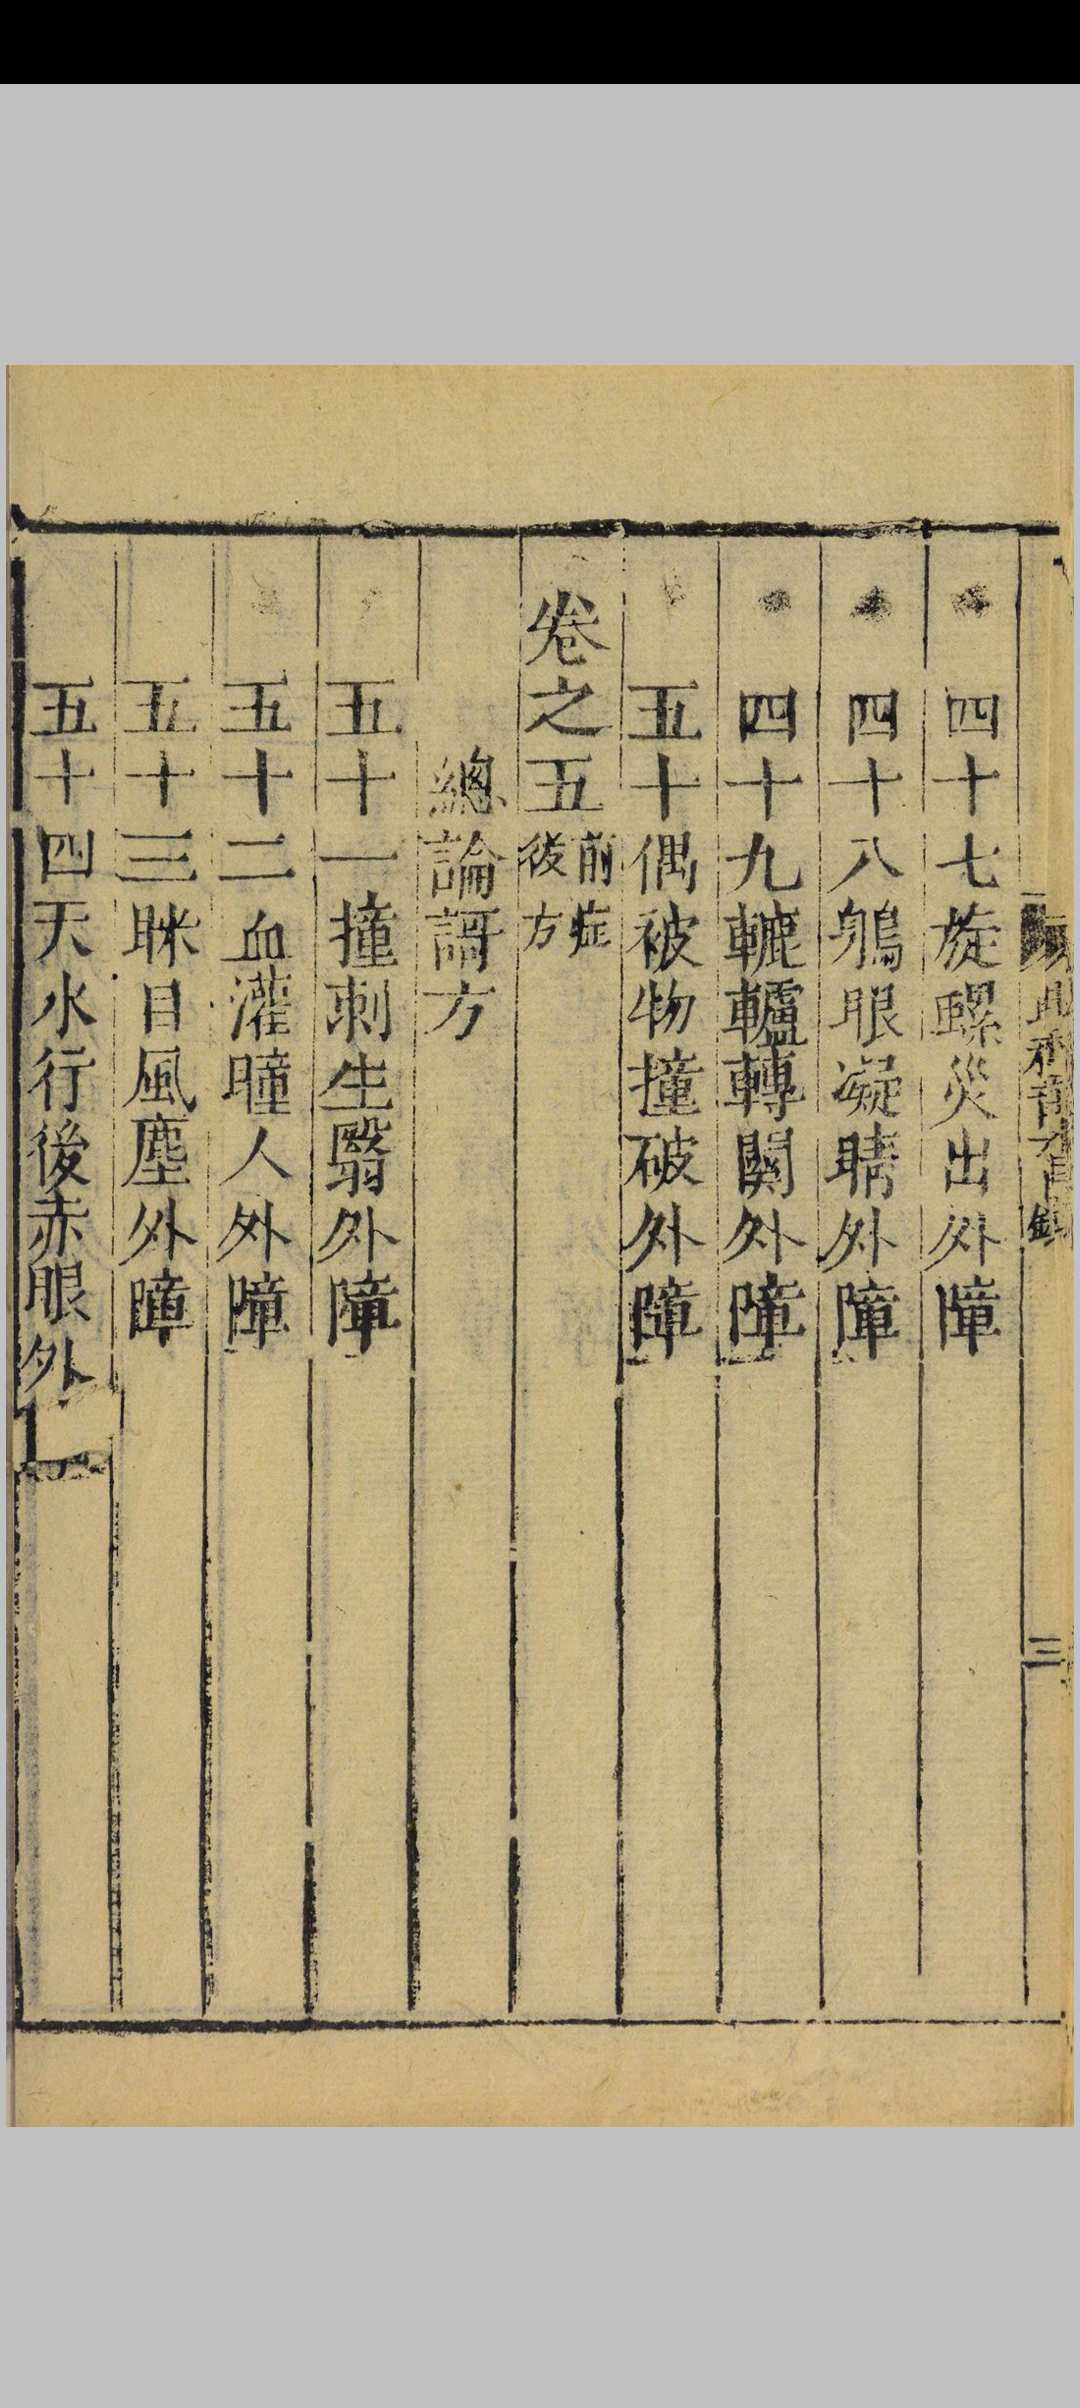 目錄
三
四十七旋螺災出外障
四十八鶻眼凝睛外障
四十九轆轤轉關外障
五十偶被物撞破外障
卷之五前症後方
總論謌方
五十一撞刺生翳外障
五十二血灌瞳人外障
五十三眯目風塵外障
五十四天水行後赤眼外